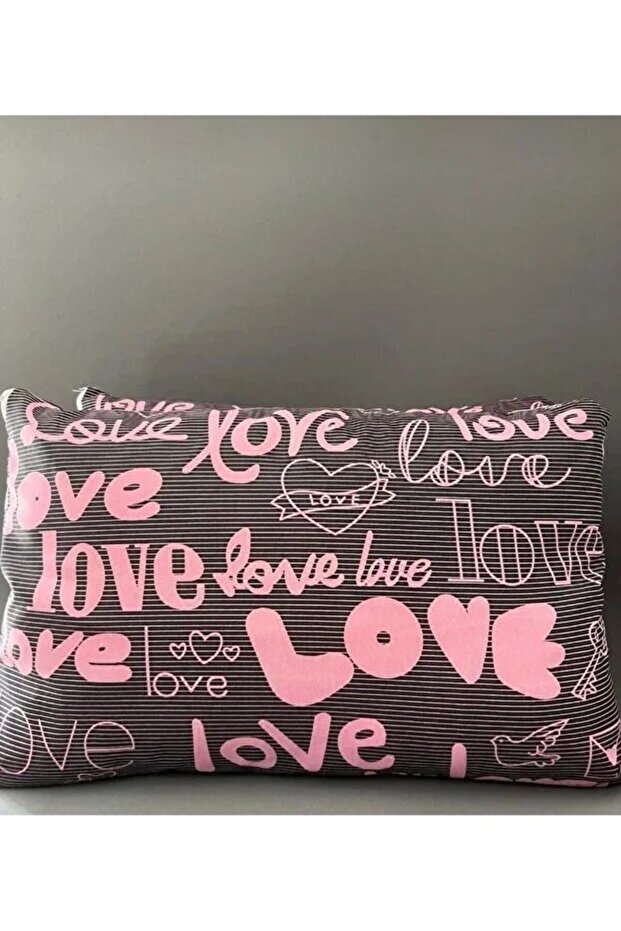 love
love love love
love love
LOVE
love
love love love
love
love LOVE
love
love love